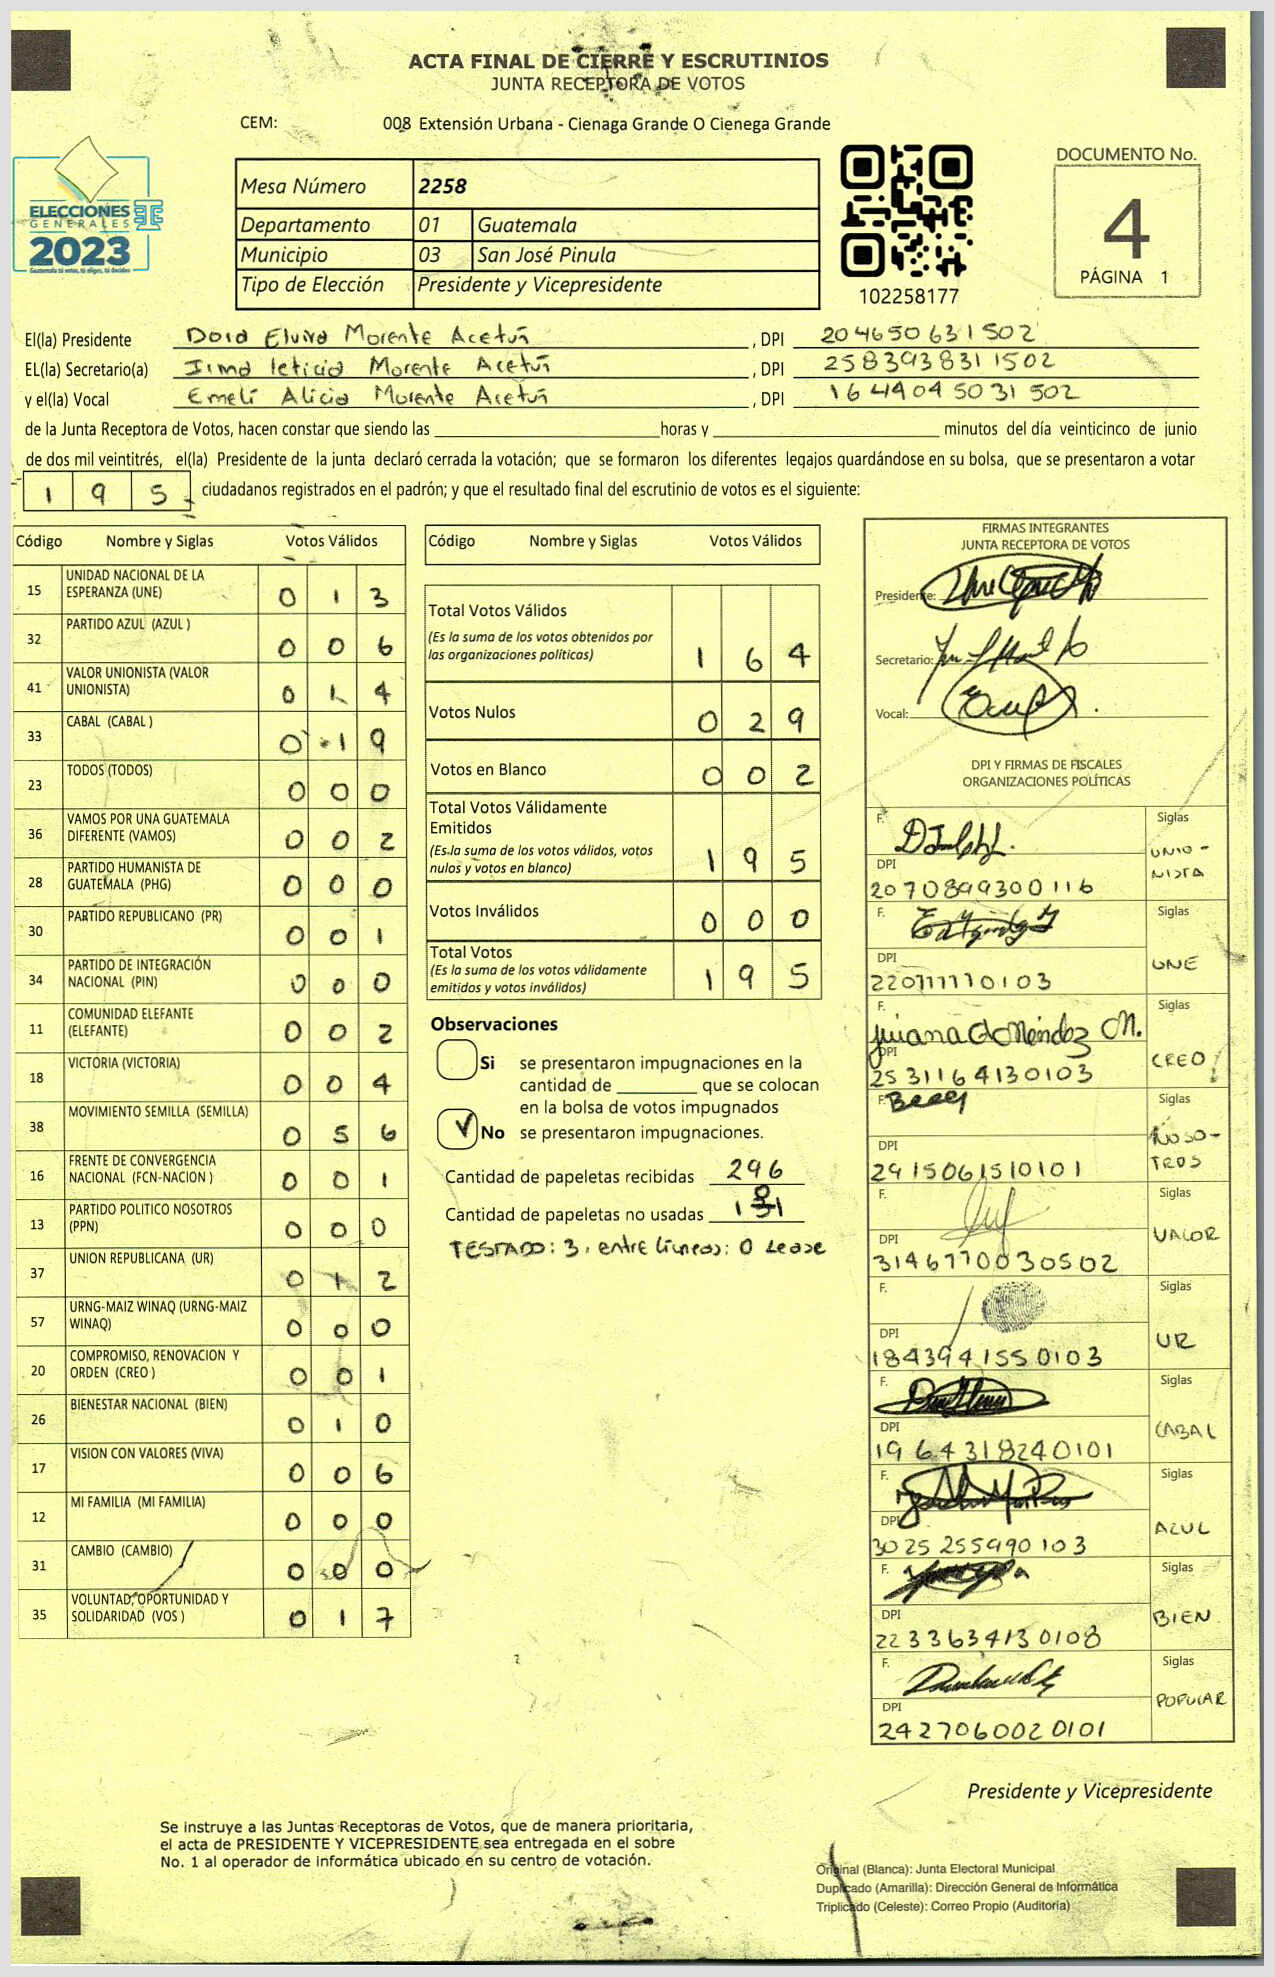 ACTA FINAL DE CIERRE Y ESCRUTINIOS
JUNTA RECEPTORA DE VOTOS
CEM: 008 Extensión Urbana - Cienaga Grande O Cienega Grande
ELECCIONES
GENERALES
2023
Guatemala tú votas, tú eliges, tú decides
Mesa Número 2258
Departamento 01 Guatemala
Municipio 03 San José Pinula
Tipo de Elección Presidente y Vicepresidente
102258177
DOCUMENTO No.
4
PÁGINA 1
El(la) Presidente Dora Elvira Morente Acetún , DPI 204650631502
EL(la) Secretario(a) Irma leticia Morente Acetún , DPI 2583938311502
y el(la) Vocal Emelí Alicia Morente Acetún , DPI 1644045031502
de la Junta Receptora de Votos, hacen constar que siendo las horas y minutos del día veinticinco de junio
de dos mil veintitrés, el(la) Presidente de la junta declaró cerrada la votación; que se formaron los diferentes legajos quardándose en su bolsa, que se presentaron a votar
195 ciudadanos registrados en el padrón; y que el resultado final del escrutinio de votos es el siguiente:
Código Nombre y Siglas Votos Válidos
15 UNIDAD NACIONAL DE LA ESPERANZA (UNE) 0 1 3
32 PARTIDO AZUL (AZUL ) 0 0 6
41 VALOR UNIONISTA (VALOR UNIONISTA) 0 1 4
33 CABAL (CABAL ) 0 1 9
23 TODOS (TODOS) 0 0 0
36 VAMOS POR UNA GUATEMALA DIFERENTE (VAMOS) 0 0 2
28 PARTIDO HUMANISTA DE GUATEMALA (PHG) 0 0 0
30 PARTIDO REPUBLICANO (PR) 0 0 1
34 PARTIDO DE INTEGRACIÓN NACIONAL (PIN) 0 0 0
11 COMUNIDAD ELEFANTE (ELEFANTE) 0 0 2
18 VICTORIA (VICTORIA) 0 0 4
38 MOVIMIENTO SEMILLA (SEMILLA) 0 5 6
16 FRENTE DE CONVERGENCIA NACIONAL (FCN-NACION ) 0 0 1
13 PARTIDO POLITICO NOSOTROS (PPN) 0 0 0
37 UNION REPUBLICANA (UR) 0 1 2
57 URNG-MAIZ WINAQ (URNG-MAIZ WINAQ) 0 0 0
20 COMPROMISO, RENOVACION Y ORDEN (CREO ) 0 0 1
26 BIENESTAR NACIONAL (BIEN) 0 1 0
17 VISION CON VALORES (VIVA) 0 0 6
12 MI FAMILIA (MI FAMILIA) 0 0 0
31 CAMBIO (CAMBIO) 0 0 0
35 VOLUNTAD, OPORTUNIDAD Y SOLIDARIDAD (VOS ) 0 1 7
Código Nombre y Siglas Votos Válidos
Total Votos Válidos
(Es la suma de los votos obtenidos por
las organizaciones políticas) 1 6 4
Votos Nulos 0 2 9
Votos en Blanco 0 0 2
Total Votos Válidamente
Emitidos
(Es la suma de los votos válidos, votos
nulos y votos en blanco) 1 9 5
Votos Inválidos 0 0 0
Total Votos
(Es la suma de los votos válidamente
emitidos y votos inválidos) 1 9 5
Observaciones
Si se presentaron impugnaciones en la
cantidad de que se colocan
en la bolsa de votos impugnados
No se presentaron impugnaciones.
Cantidad de papeletas recibidas 296
Cantidad de papeletas no usadas 131
0
TESTADO: 3, entre líneas: 0 Lease
FIRMAS INTEGRANTES
JUNTA RECEPTORA DE VOTOS
Presidente:
Secretario:
Vocal:
DPI Y FIRMAS DE FISCALES
ORGANIZACIONES POLÍTICAS
F. Siglas
UNIO-
NISTA
DPI
2070899300116
F. Siglas
UNE
DPI
2207111110103
F. Juana G Méndez M. Siglas
CREO
DPI
2531164130103
F. Siglas
NOSO-
TROS
DPI
2915061510101
F. Siglas
VALOR
DPI
3146770030502
F. Siglas
UR
DPI
1843941550103
F. Siglas
CABAL
DPI
1964318240101
F. Siglas
AZUL
DPI
3025255990103
F. Siglas
BIEN
DPI
2233634130108
F. Siglas
POPULAR
DPI
2427060020101
Presidente y Vicepresidente
Se instruye a las Juntas Receptoras de Votos, que de manera prioritaria,
el acta de PRESIDENTE Y VICEPRESIDENTE sea entregada en el sobre
No. 1 al operador de informática ubicado en su centro de votación.
Original (Blanca): Junta Electoral Municipal
Duplicado (Amarilla): Dirección General de Informática
Triplicado (Celeste): Correo Propio (Auditoría)